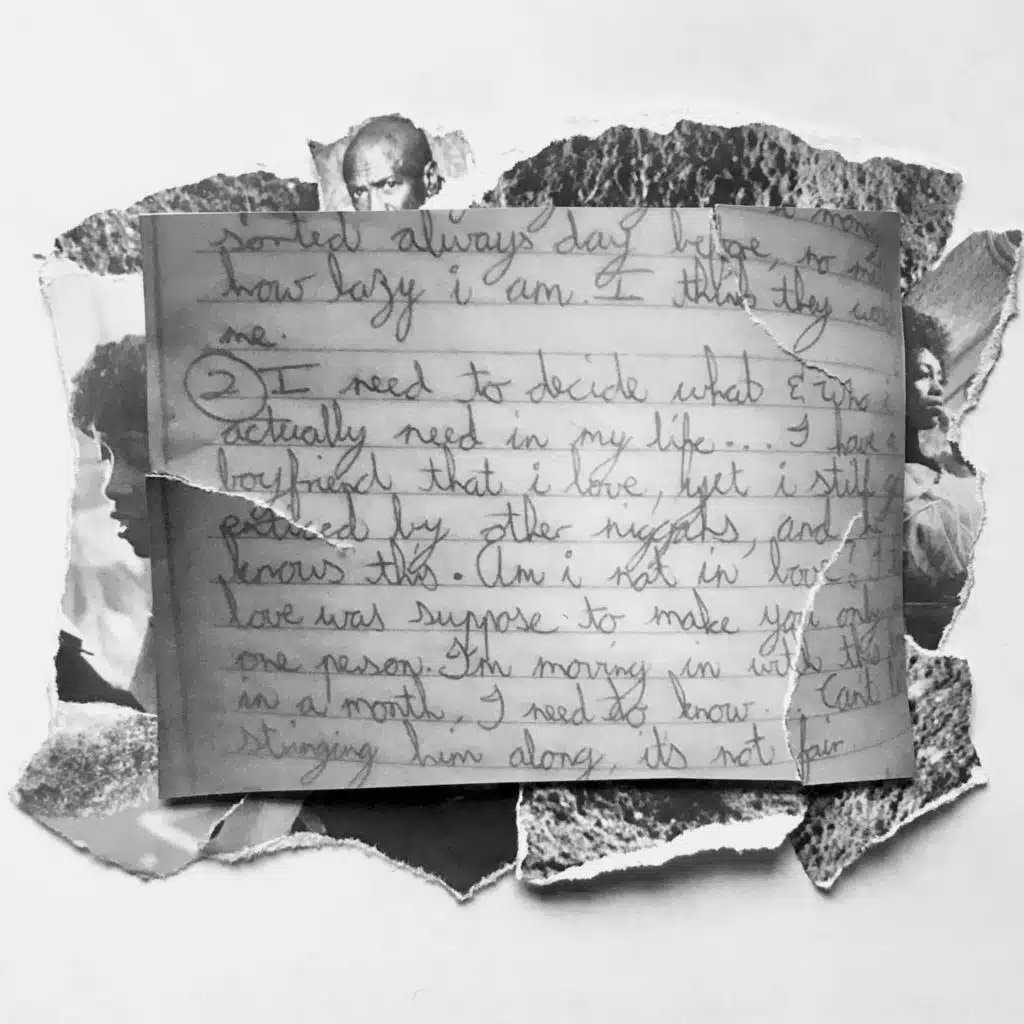 sorted always day before, no
how lazy i am. I think they
me.
2 I need to decide what & who i
actually need in my life... I have a
boyfriend that i love, yet i still
enticed by other niggahs, and
knows this. Am i not in love? I
love was suppose to make you only
one person. I'm moving in with this
in a month, I need to know. Cant
stringing him along, it's not fair.